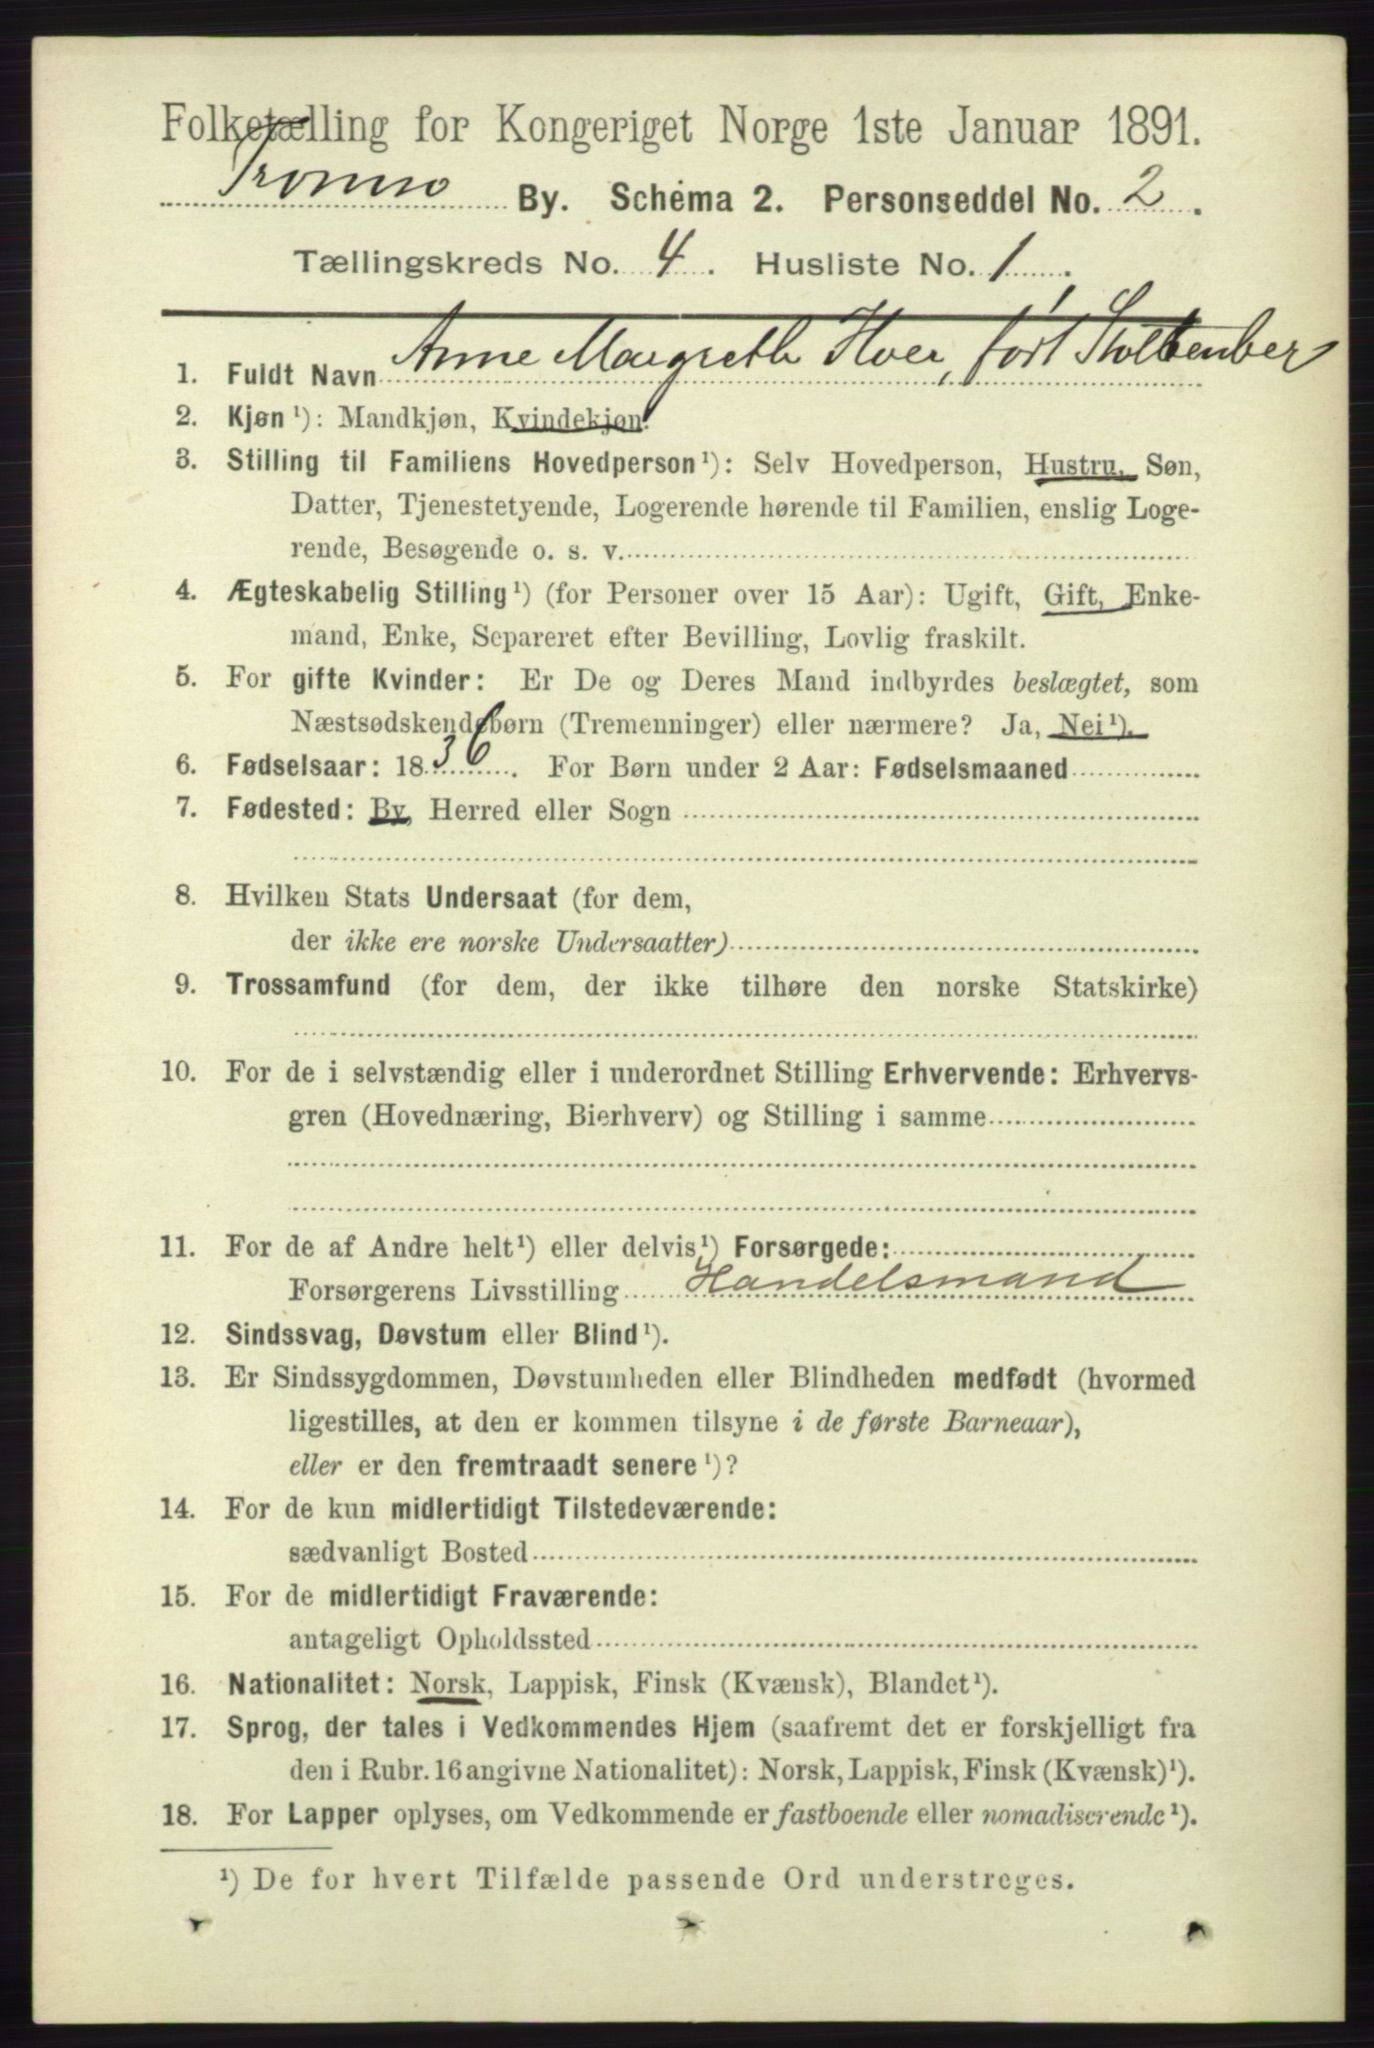 Folketælling for Kongeriget Norge 1ste Januar 1891.
Tromsø By. Schema 2. Personseddel No. 2.
Tællingskreds No. 4. Husliste No. 1.
1. Fuldt Navn Anne Margreth Hoer, født Stoltenberg
2. Kjøn ¹): Mandkjøn, Kvindekjøn.
3. Stilling til Familiens Hovedperson ¹): Selv Hovedperson, Hustru, Søn,
Datter, Tjenestetyende, Logerende hørende til Familien, enslig Loge-
rende, Besøgende o. s. v.
4. Ægteskabelig Stilling ¹) (for Personer over 15 Aar): Ugift, Gift, Enke-
mand, Enke, Separeret efter Bevilling, Lovlig fraskilt.
5. For gifte Kvinder: Er De og Deres Mand indbyrdes beslægtet, som
Næstsødskendebørn (Tremenninger) eller nærmere? Ja, Nei ¹).
6. Fødselsaar: 1836. For Børn under 2 Aar: Fødselsmaaned
7. Fødested: By, Herred eller Sogn
8. Hvilken Stats Undersaat (for dem,
der ikke ere norske Undersaatter)
9. Trossamfund (for dem, der ikke tilhøre den norske Statskirke)
10. For de i selvstændig eller i underordnet Stilling Erhvervende: Erhvervs-
gren (Hovednæring, Bierhverv) og Stilling i samme
11. For de af Andre helt ¹) eller delvis ¹) Forsørgede:
Forsørgerens Livsstilling Handelsmand
12. Sindssvag, Døvstum eller Blind ¹).
13. Er Sindssygdommen, Døvstumheden eller Blindheden medfødt (hvormed
ligestilles, at den er kommen tilsyne i de første Barneaar),
eller er den fremtraadt senere ¹)?
14. For de kun midlertidigt Tilstedeværende:
sædvanligt Bosted
15. For de midlertidigt Fraværende:
antageligt Opholdssted
16. Nationalitet: Norsk, Lappisk, Finsk (Kvænsk), Blandet ¹).
17. Sprog, der tales i Vedkommendes Hjem (saafremt det er forskjelligt fra
den i Rubr. 16 angivne Nationalitet): Norsk, Lappisk, Finsk (Kvænsk) ¹).
18. For Lapper oplyses, om Vedkommende er fastboende eller nomadiserende ¹).
¹) De for hvert Tilfælde passende Ord understreges.